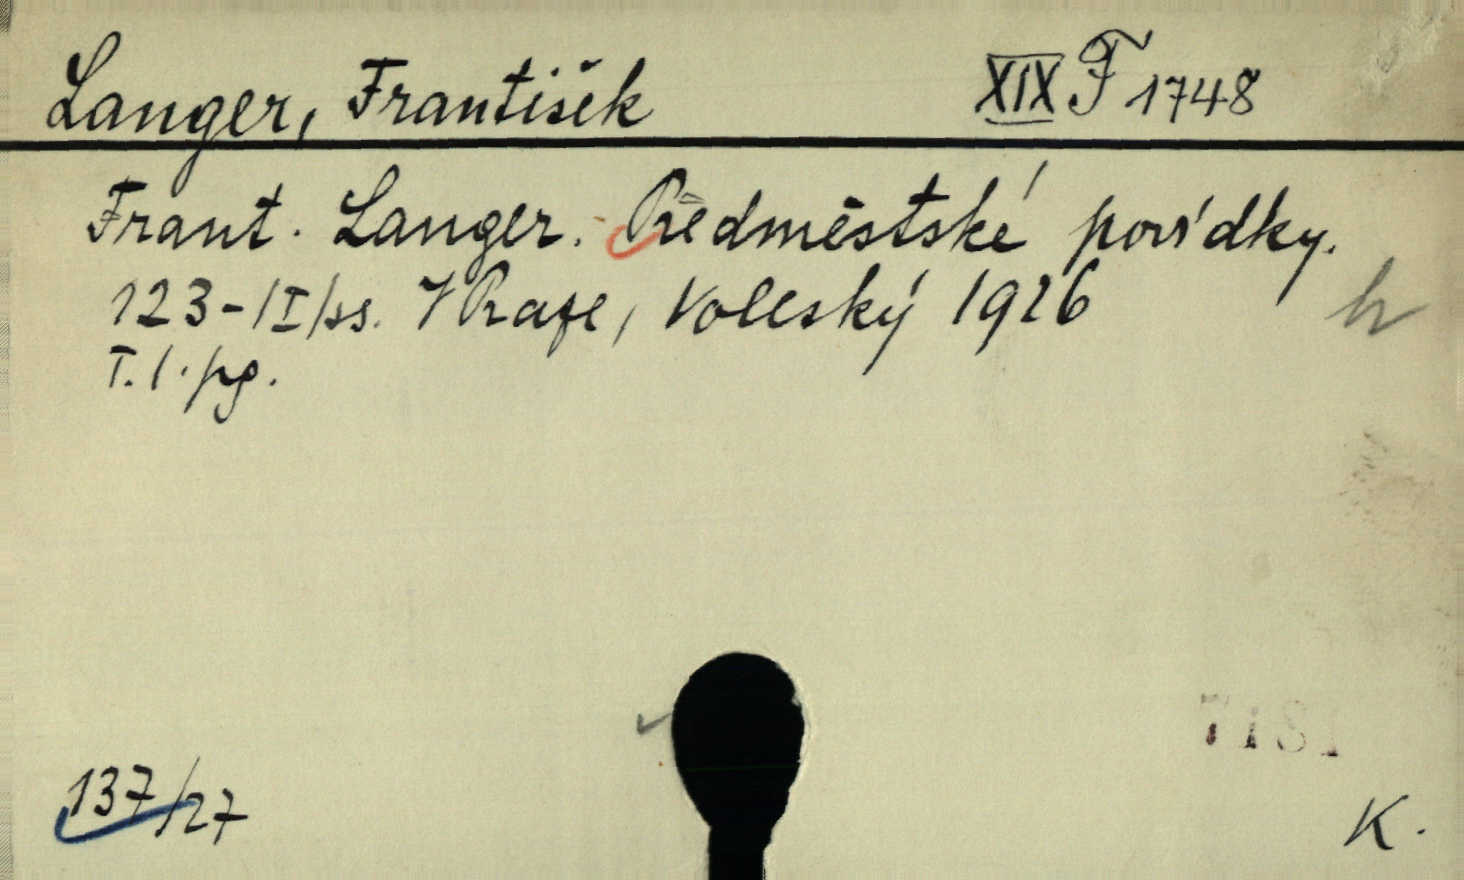 Langer, František XIX F 1748
Frant. Langer. Předměstské povídky.
123-/I/ss. V Praze, Voleský 1926
T. l. pg.
7181
137/27
K.